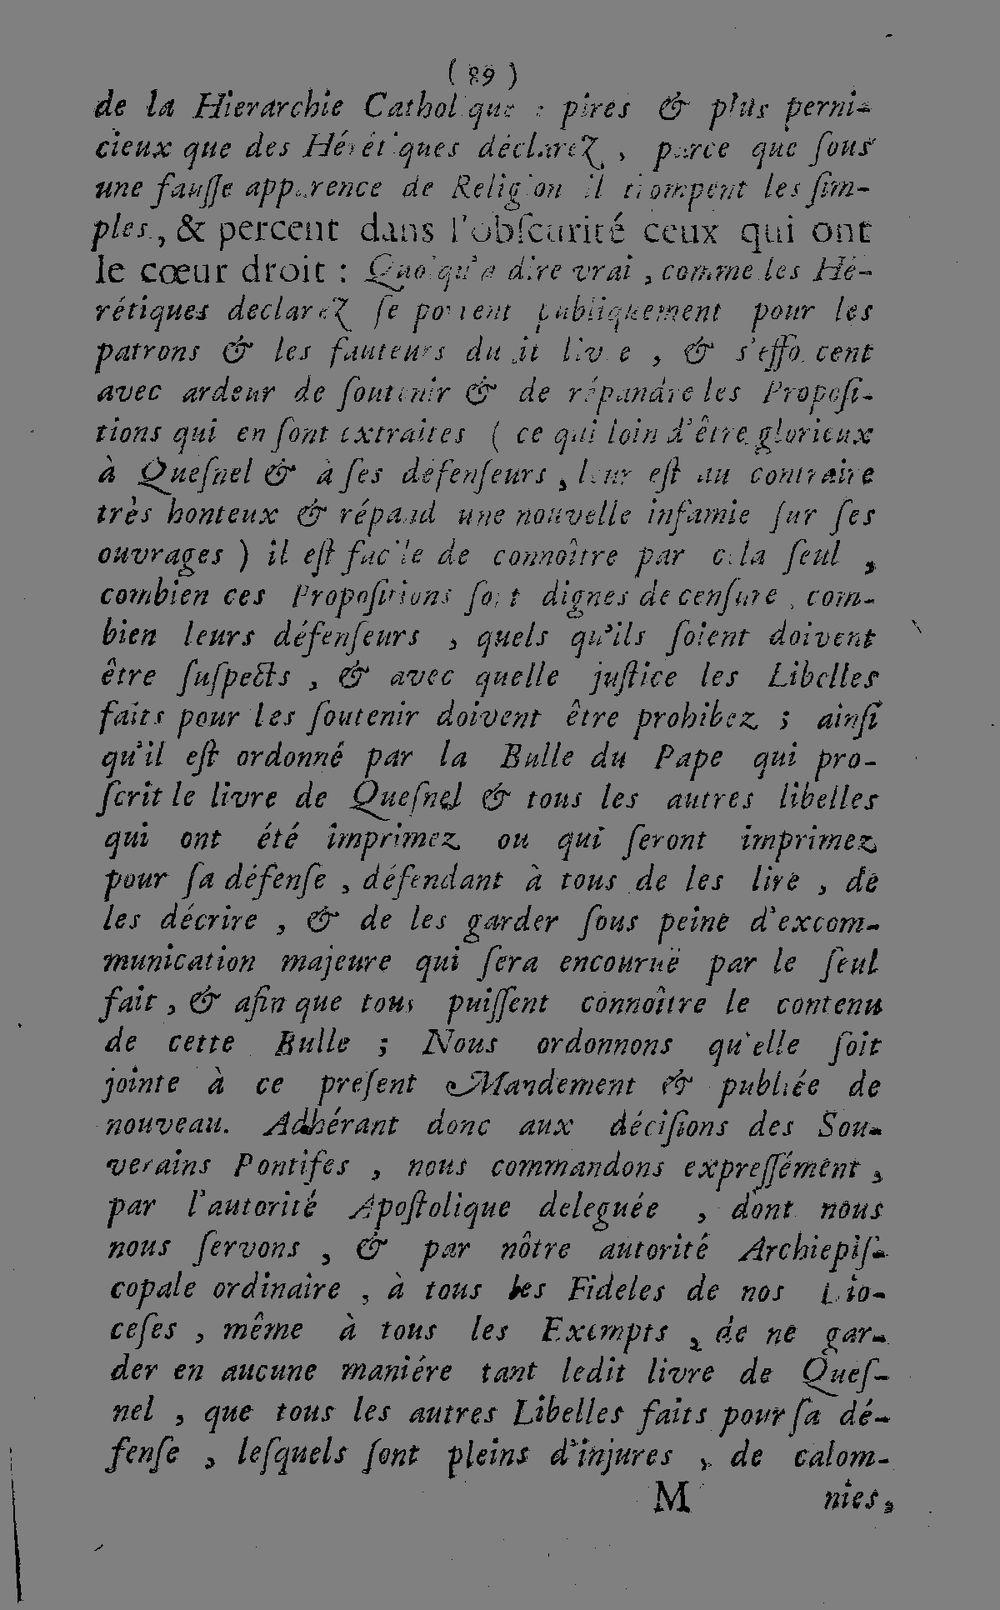 ( 89 )
de la Hierarchie Catholique : pires & plus perni-
cieux que des Hérétiques déclarez, parce que ſous
une fauſſe apparence de Religion il trompent les ſim-
ples, & percent dans l'obſcurité ceux qui ont
le cœur droit : Quoiqu'a dire vrai, comme les Hé-
rétiques declarez ſe portent publiquement pour les
patrons & les fauteurs dudit livre, & s'efforcent
avec ardeur de ſoutenir & de répandre les Propoſi-
tions qui en ſont extraites ( ce qui loin d'être glorieux
à Queſnel & à ſes défenſeurs, leur eſt au contraire
très honteux & répand une nouvelle infamie ſur ſes
ouvrages ) il eſt facile de connoître par cela ſeul,
combien ces Propoſitions ſont dignes de cenſure, com-
bien leurs défenſeurs, quels qu'ils ſoient doivent
être ſuſpects, & avec quelle juſtice les Libelles
faits pour les ſoutenir doivent être prohibez ; ainſi
qu'il eſt ordonné par la Bulle du Pape qui pro-
ſcrit le livre de Queſnel & tous les autres libelles
qui ont été imprimez ou qui ſeront imprimez
pour ſa défenſe, défendant à tous de les lire, de
les décrire, & de les garder ſous peine d'excom-
munication majeure qui ſera encouruë par le ſeul
fait, & afin que tous puiſſent connoître le contenu
de cette Bulle ; Nous ordonnons qu'elle ſoit
jointe à ce preſent Mandement & publiée de
nouveau. Adhérant donc aux déciſions des Sou-
verains Pontifes, nous commandons expreſſément,
par l'autorité Apoſtolique deleguée, dont nous
nous ſervons, & par nôtre autorité Archiepiſ-
copale ordinaire, à tous les Fideles de nos Dio-
ceſes, même à tous les Exempts, de ne gar-
der en aucune maniére tant ledit livre de Queſ-
nel, que tous les autres Libelles faits pour ſa dé-
fenſe, leſquels ſont pleins d'injures, de calom-
M nies,